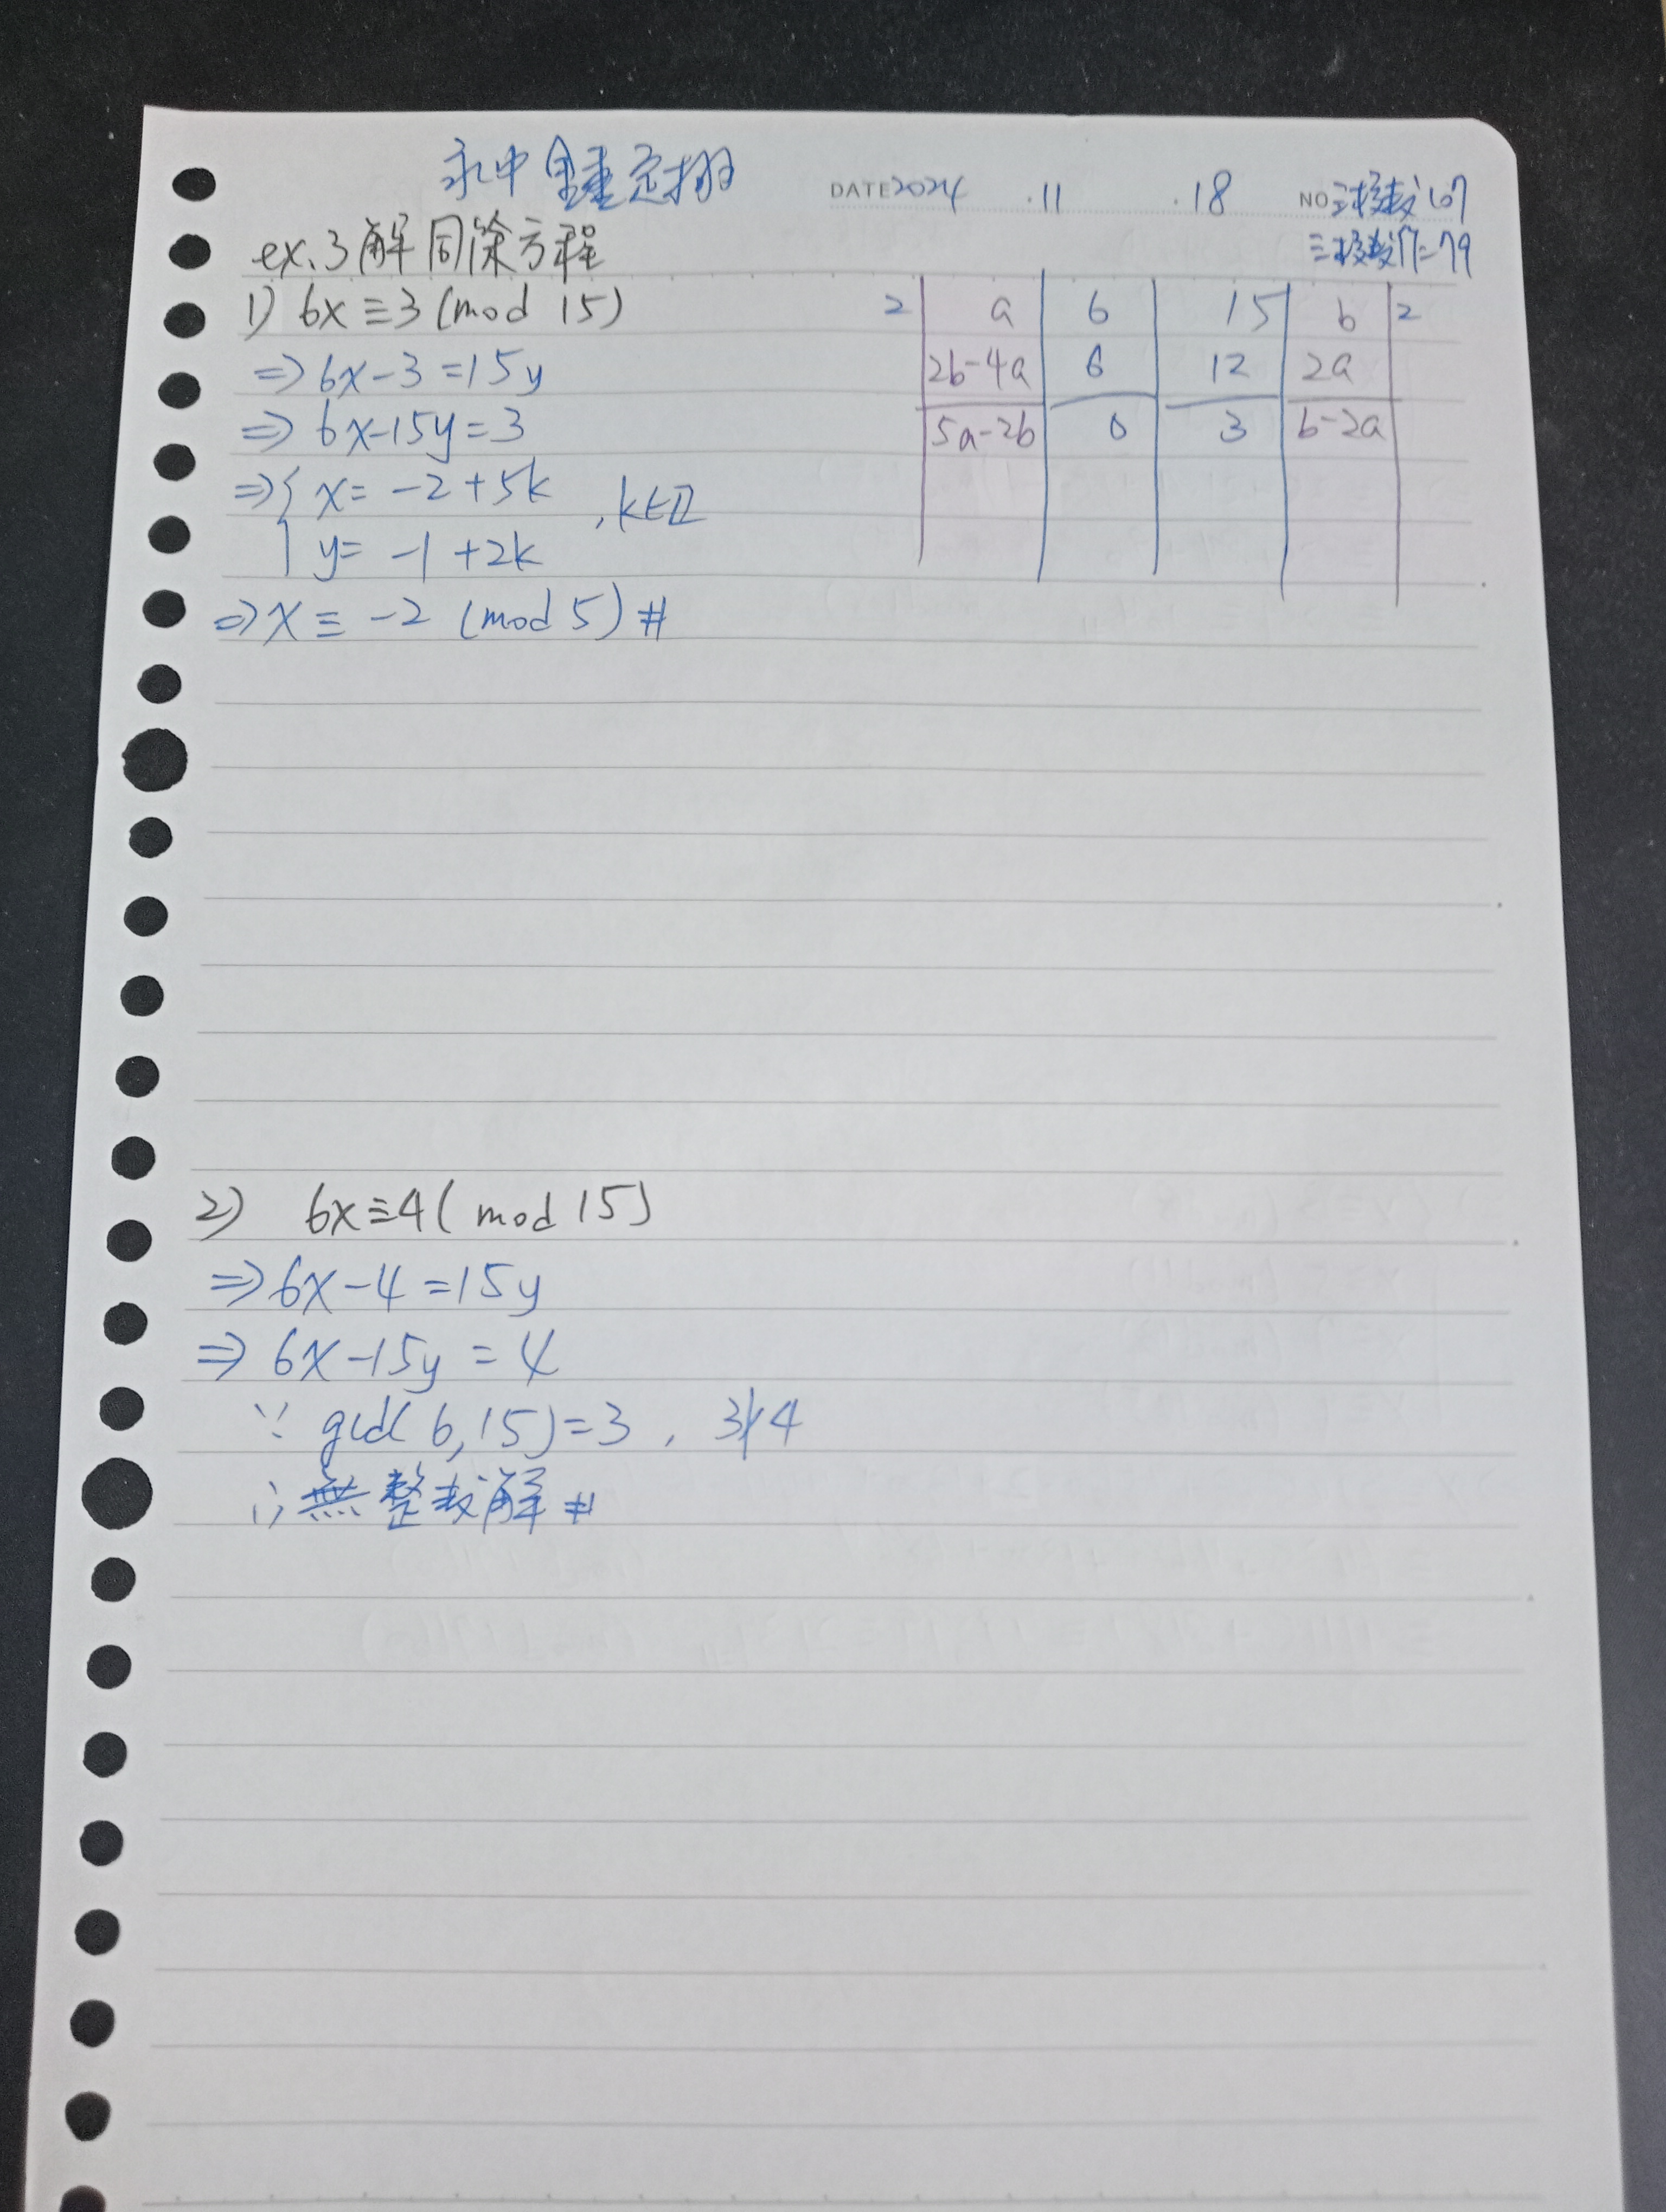 永中 鍾定栩 DATE 2024 .11 .18 NO
ex.3 解同餘方程
1) 6x≡3 (mod 15)
⇒6x-3=15y
⇒6x-15y=3
⇒{ x= -2+5k
y= -1+2k , k∈ℤ
⇒x≡ -2 (mod 5) #
2 a 6 15 b 2
2b-4a 6 12 2a
5a-2b 0 3 b-2a
2) 6x≡4( mod 15)
⇒6x-4=15y
⇒6x-15y=4
∵ gcd( 6,15)=3 , 3∤4
∴無整数解 #